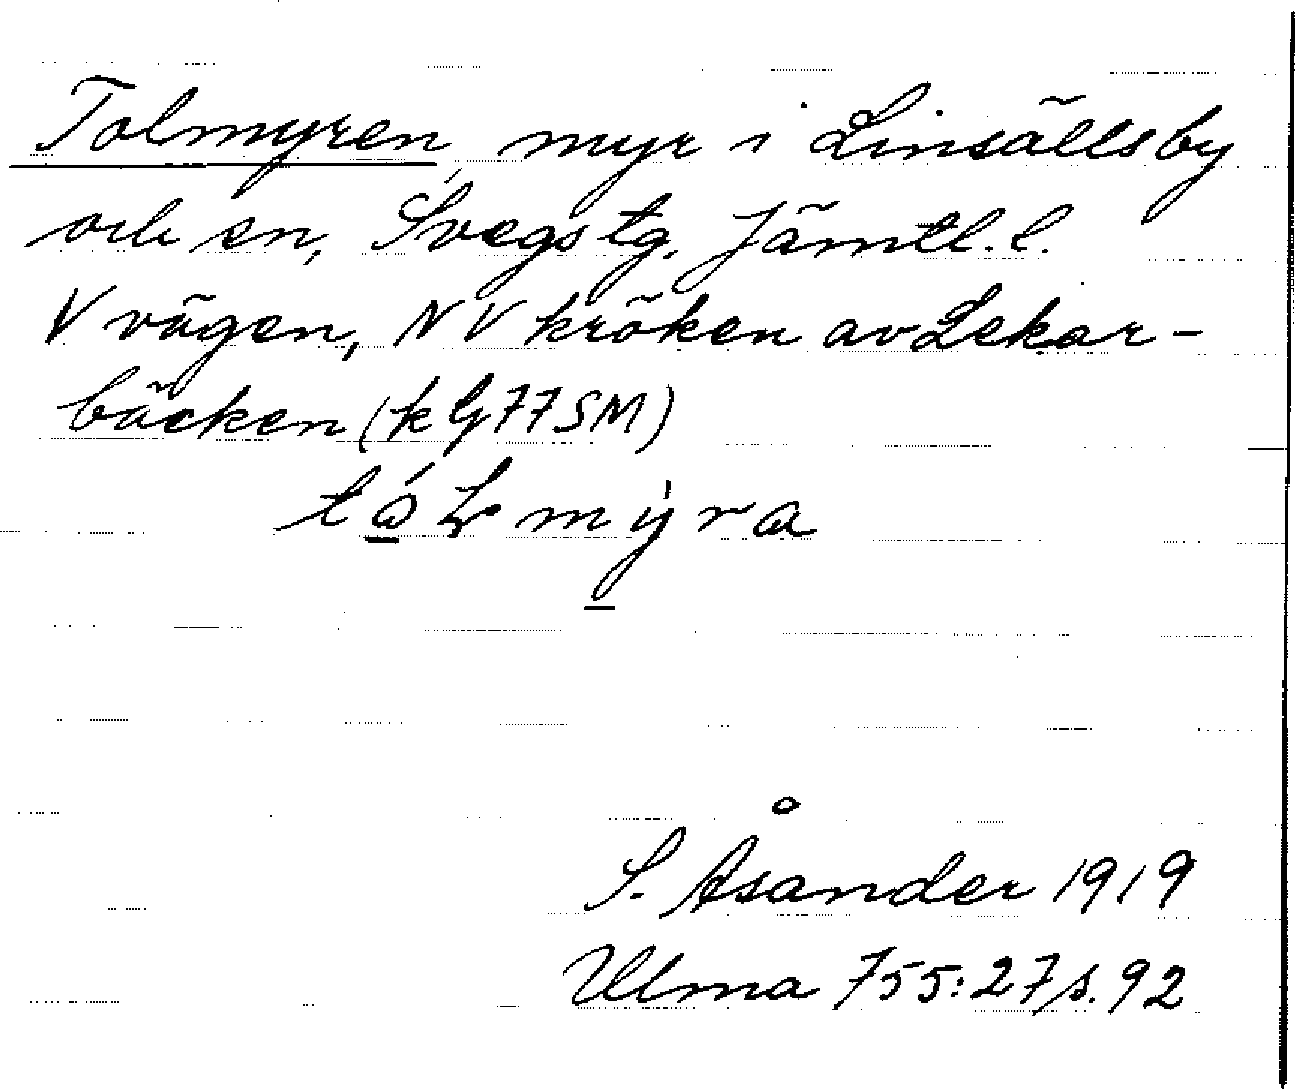 Tolmyren, myr i Linsälls by
och sn, Svegs tg. Jämtl. l.
V vägen, NV kröken av Lekar-
bäcken (k G 77 SM)
tɷ́Lmýra
S. Åsander 1919
Ulma 755:27 s. 92